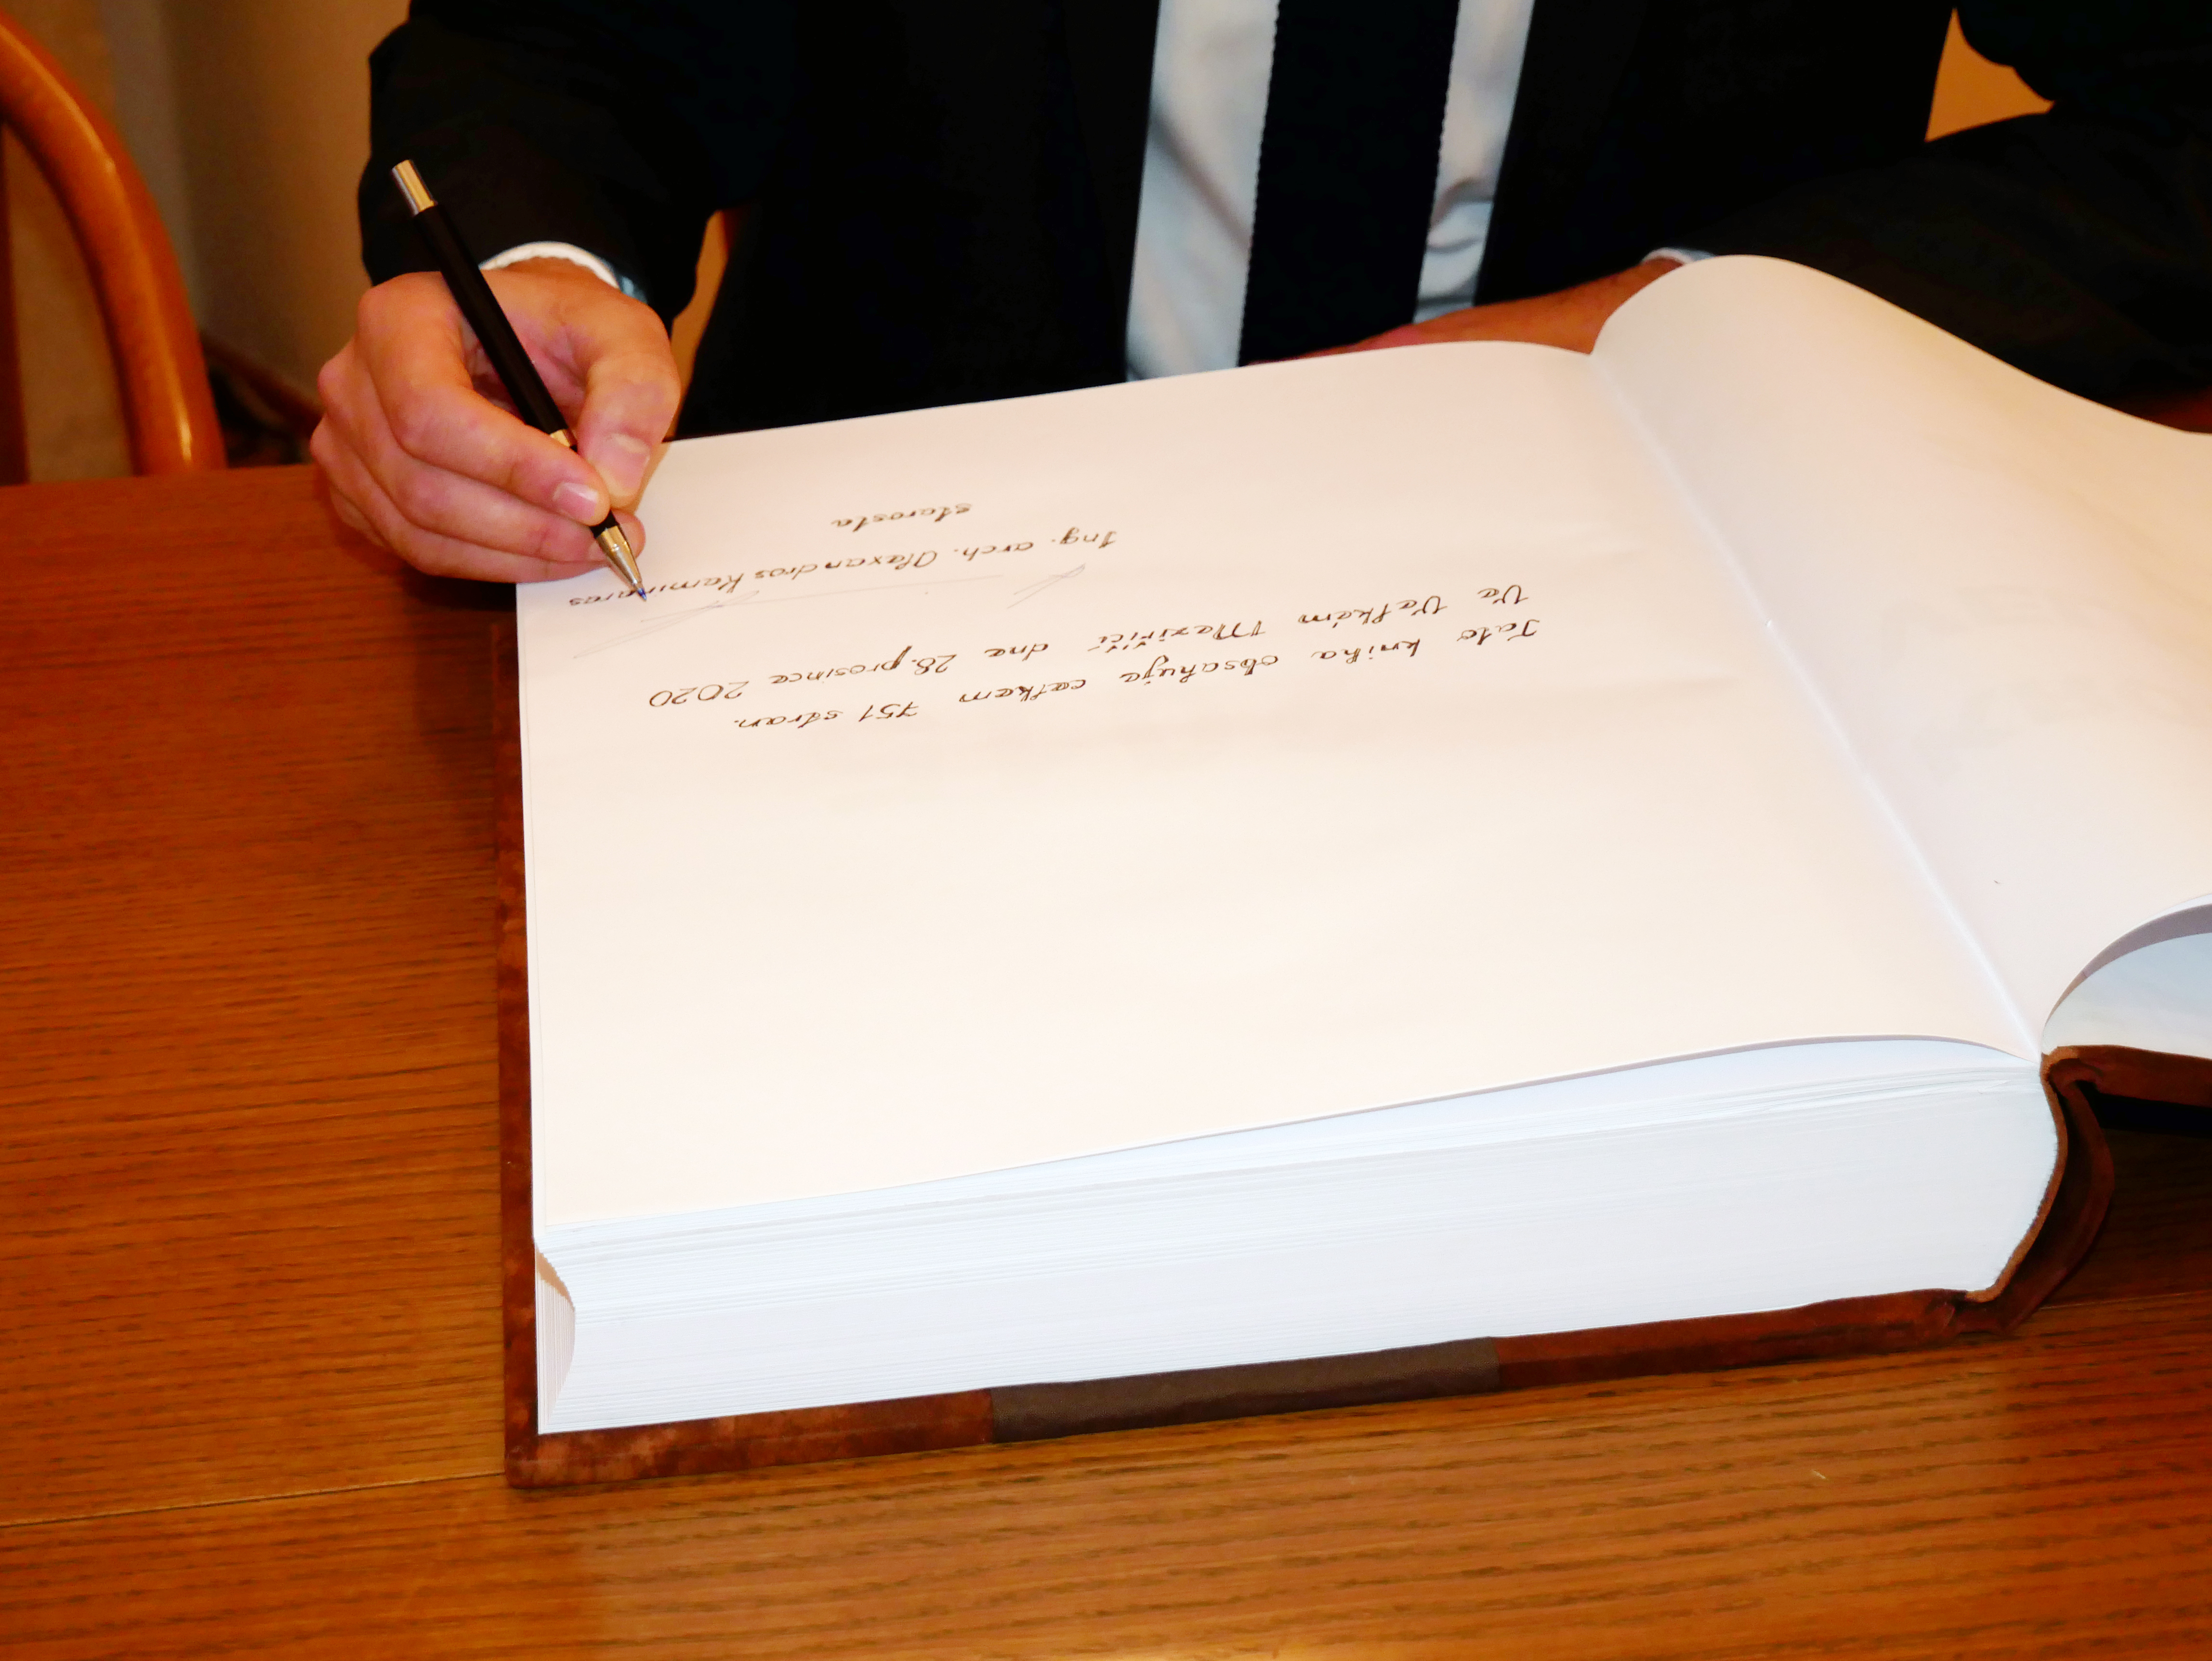 Tato kniha obsahuje celkem 751 stran.
Ve Velkém Meziříčí dne 28. prosince 2020
Ing. arch. Alexandros Kaminaras
starosta